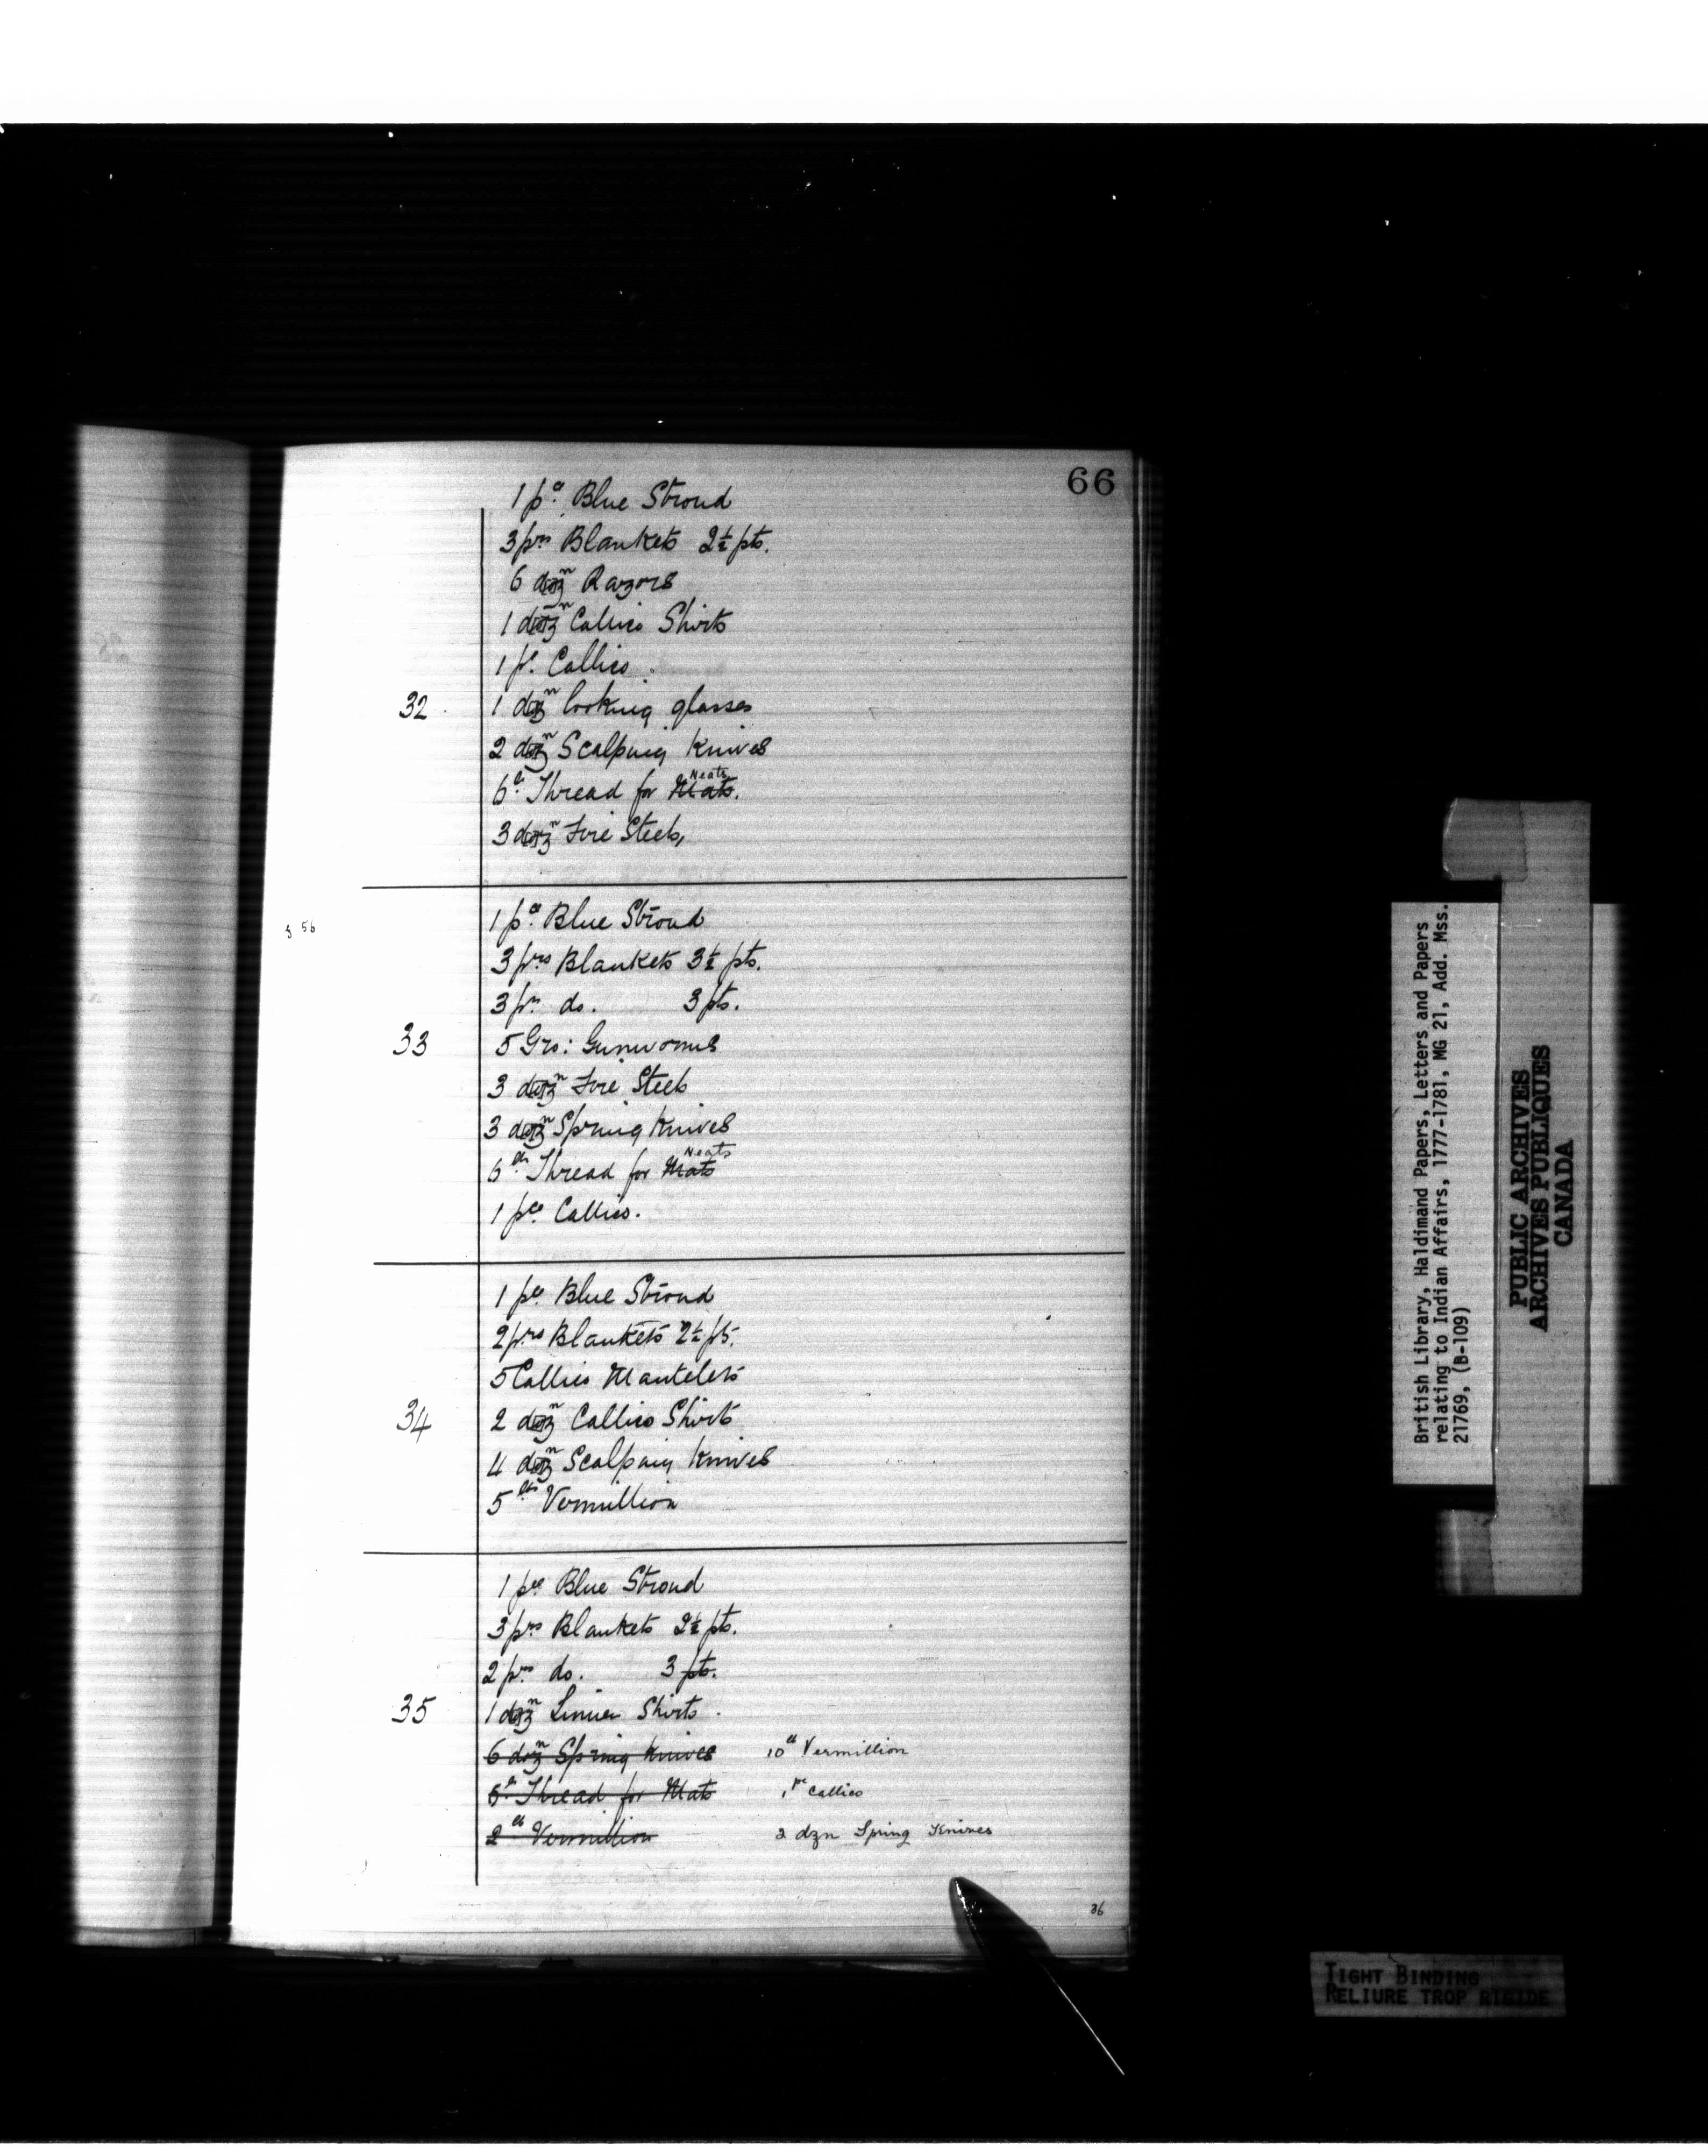 66
1 pce. Blue Stroud
3 prs Blankets 2½ pts.
6 dozn Razors
1 dozn Callico Shirts
1 pe. Callico.
32
1 dozn looking glasses
2 dozn Scalping Knives
6lb. Thread for Mats. Neats
3 dozn Fire Steels,
f 56
1 pce. Blue Stroud
3 prs Blankets 3½ pts.
3 prs do. 3 pts.
33
5 Gro: Gunworms
3 dozn Fire Steels
3 dozn Spring Knives
6 lbs. Thread for Mats Neats
1 pce. Callico.
1 pce. Blue Stroud
2 prs Blankets 2½ pts.
5 Callico Mantelets
34
2 dozn Callico Shirts
4 dozn Scalping Knives
5 lbs Vermillion
1 pce Blue Stroud
3 prs Blankets 2½ pts.
2 prs do. 3 pts.
35
1 dozn Linnen Shirts.
6 dozn Spring Knives 10 lb Vermillion
6lb. Thread for Mats 1 pce Callico
2 lb Vermillion 2 dzn Spring Knives
36
British Library, Haldimand Papers, Letters and Papers
relating to Indian Affairs, 1777-1781, MG 21, Add. Mss.
21769, (B-109)
PUBLIC ARCHIVES
ARCHIVES PUBLIQUES
CANADA
TIGHT BINDING
RELIURE TROP RIGIDE